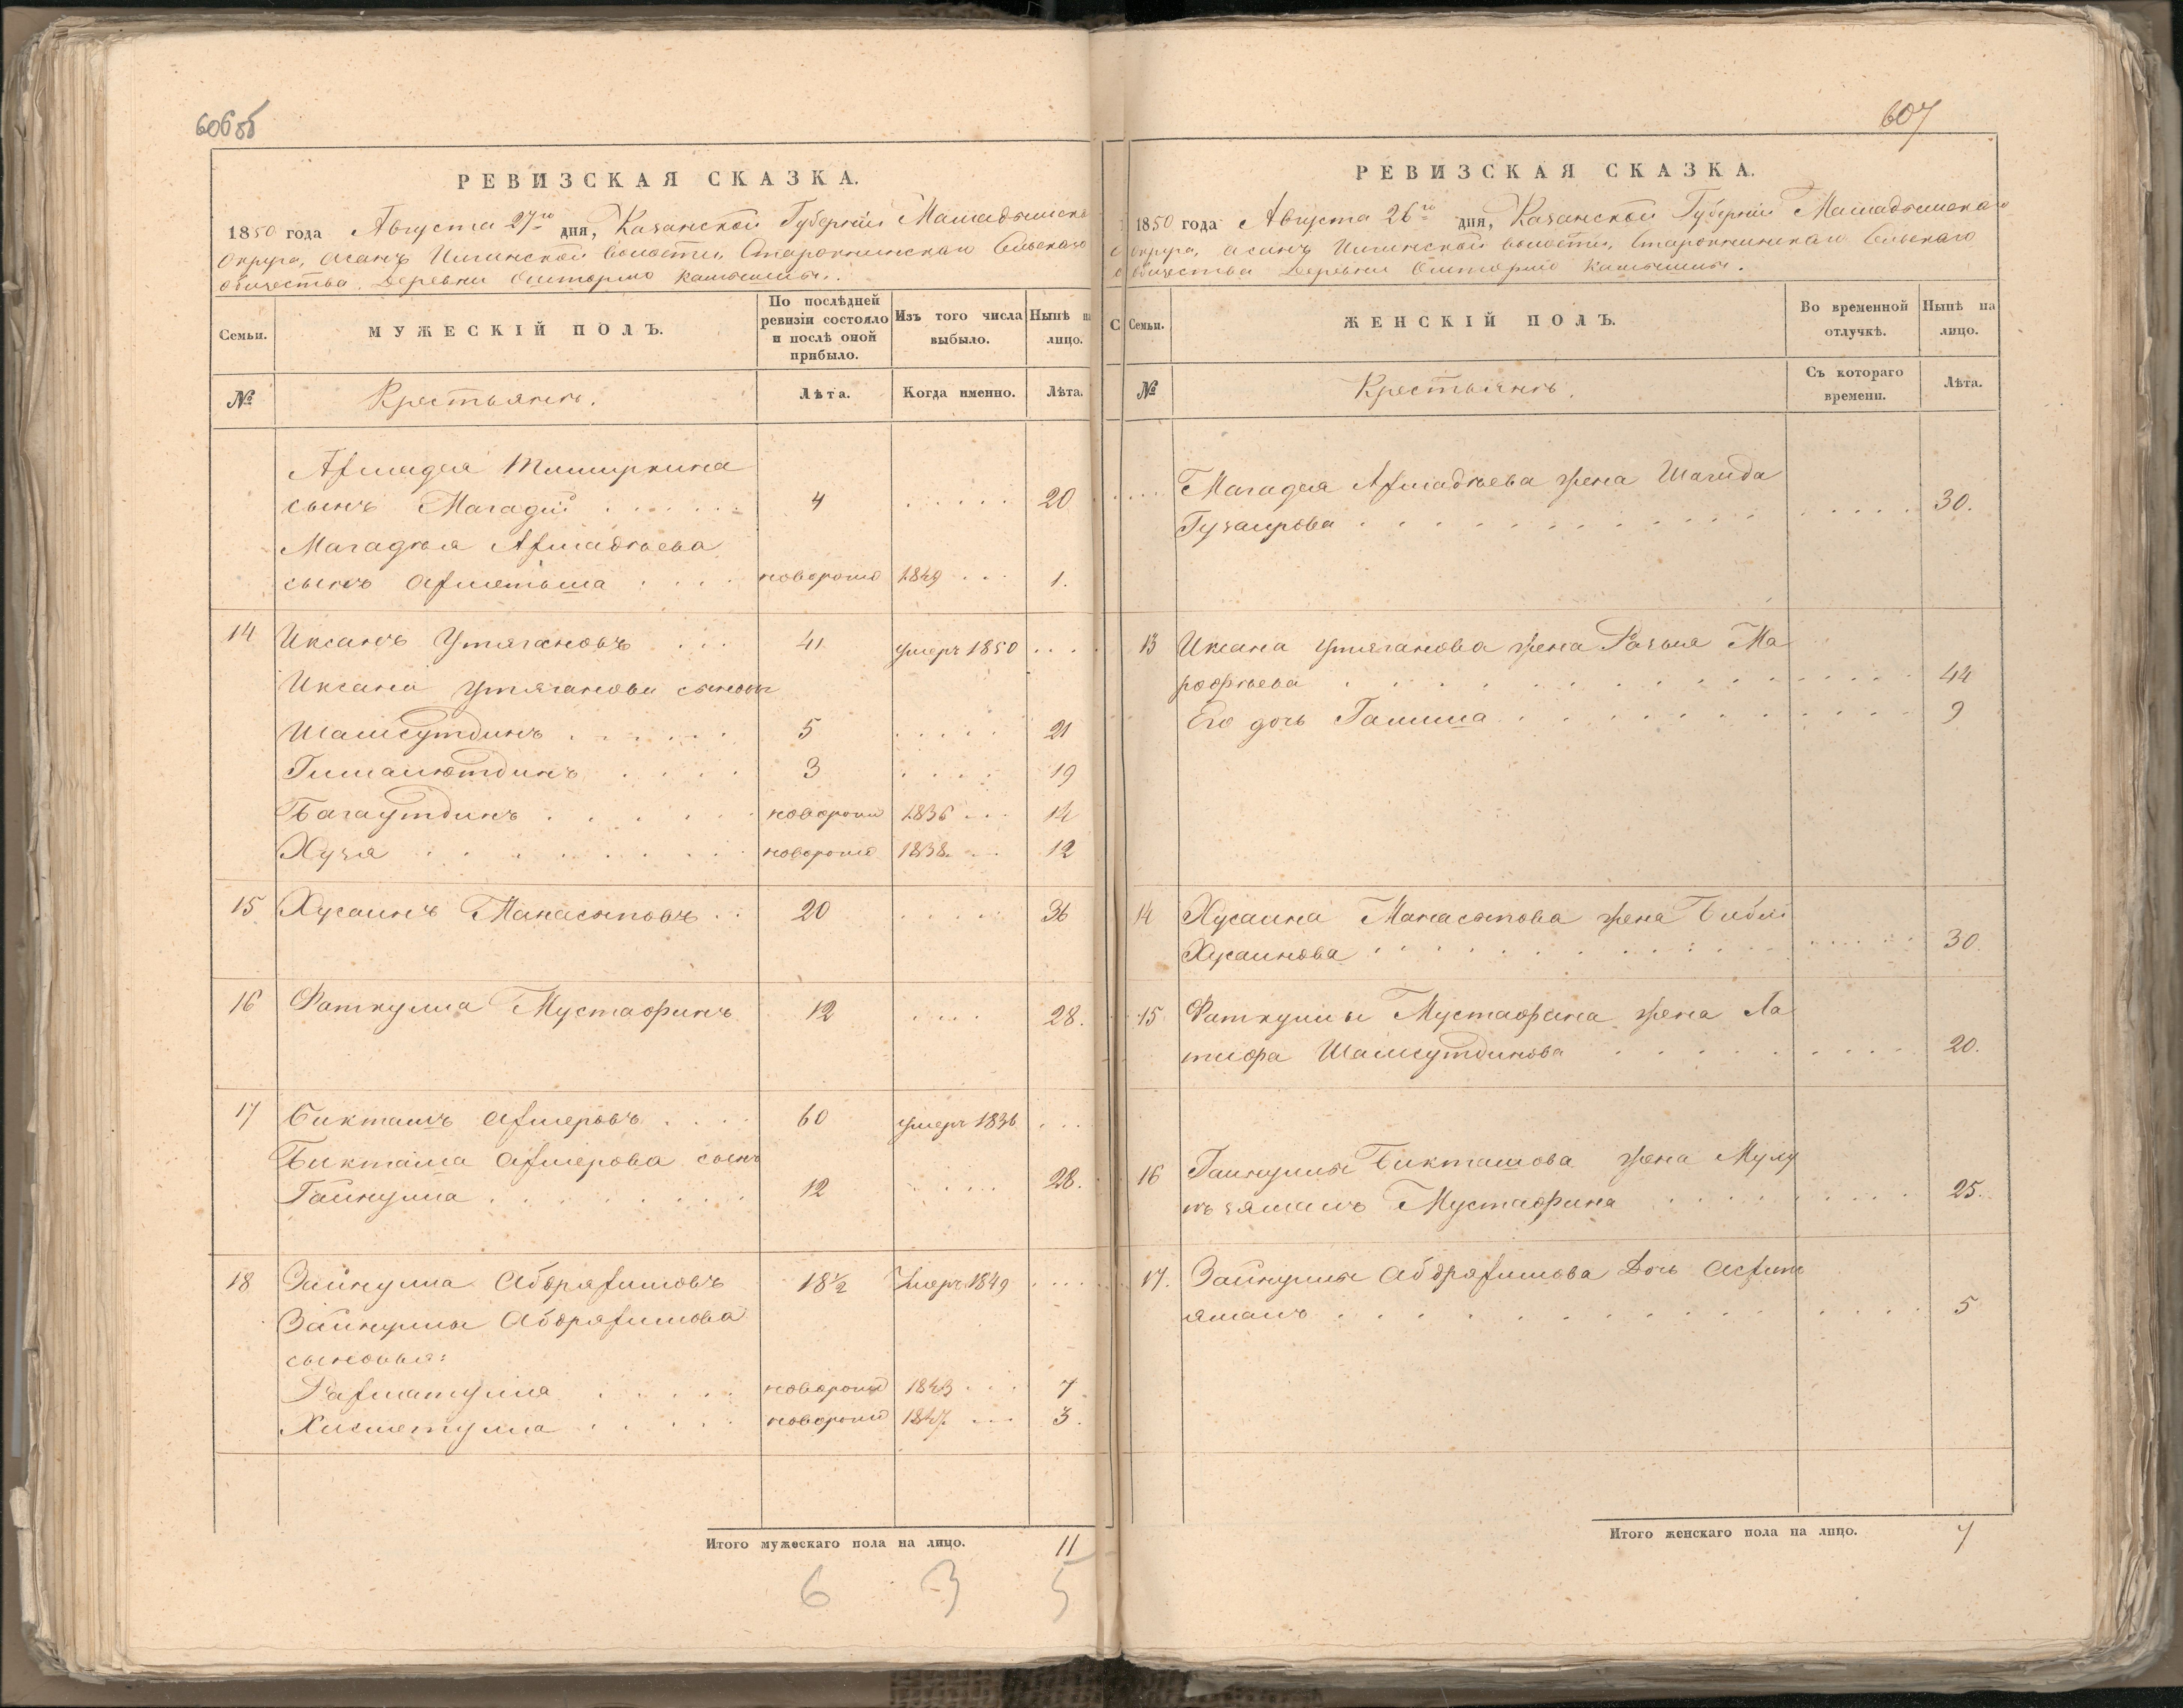 606об
РЕВИЗСКАЯ СКАЗКА.
1850 года Августа 27го дня, Казанской Губерніи Мамадышска
округа, Асанъ Илгинской волости, Старокнинскаго Сельскаго
общества, Деревни Оштормо
Семьи.
МУЖЕСКІЙ ПОЛЪ.
По послѣдней ревизіи состояло и послѣ оной прибыло.
Изъ того числа выбыло.
Нынѣ на лицо.
№
Крестьянъ.
Лѣта.
Когда именно.
Лѣта.
сынъ Магадѣй 4 20
Магадѣя Ахмадѣева
сынъ новорожд 1849 1.
14 Иксанъ Утягановъ 41 умеръ 1850
Иксана Утяганова сыновья
Шамсутдинъ 5 21
Гималютдинъ 3 19
Багаутдинъ новорожд 1836 14
Хузя новорожд 1838 12
15 Хусаинъ Манасыповъ 20 36
16 Фаткулла Мустафинъ 12 28.
17 Бикташъ Ахмеровъ 60 умеръ 1836
Бикташа Ахмерова сынъ
Гайнулла 12 28.
18 Зайнулла Абдряхимовъ 18½ Умеръ 1849
Зайнуллы Абдряхимова
сыновья:
Рахматулла новорожд 1843 7
Хисметулла новорожд 1847 3.
Итого мужескаго пола на лицо. 11
6 3 5
607
РЕВИЗСКАЯ СКАЗКА.
1850 года Августа 26го дня, Казанской Губерніи Мамадышскаго
округа, Асанъ Илгинской волости, Старокнинскаго Сельскаго
общества Деревни Оштормо
Семьи.
ЖЕНСКІЙ ПОЛЪ.
Во временной отлучкѣ.
Нынѣ на лицо.
№
Крестьянъ.
Съ котораго времени.
Лѣта.
Магадѣя Ахмадѣева жена Шагида
Губаирова 30.
13 Иксана Утяганова жена Разыя Ма
рофѣева 44
Его дочь Галима 9
14 Хусаина Манасыпова жена Биби
Хусаинова 30.
15 Фаткуллы Мустафина жена Ла
тифа Шамсутдинова 20.
16 Гайнуллы Бикташова жена Мулу
Мустафина 25.
17. Зайнуллы Абдряхимова Дочь
ямалъ 5
Итого женскаго пола на лицо. 7